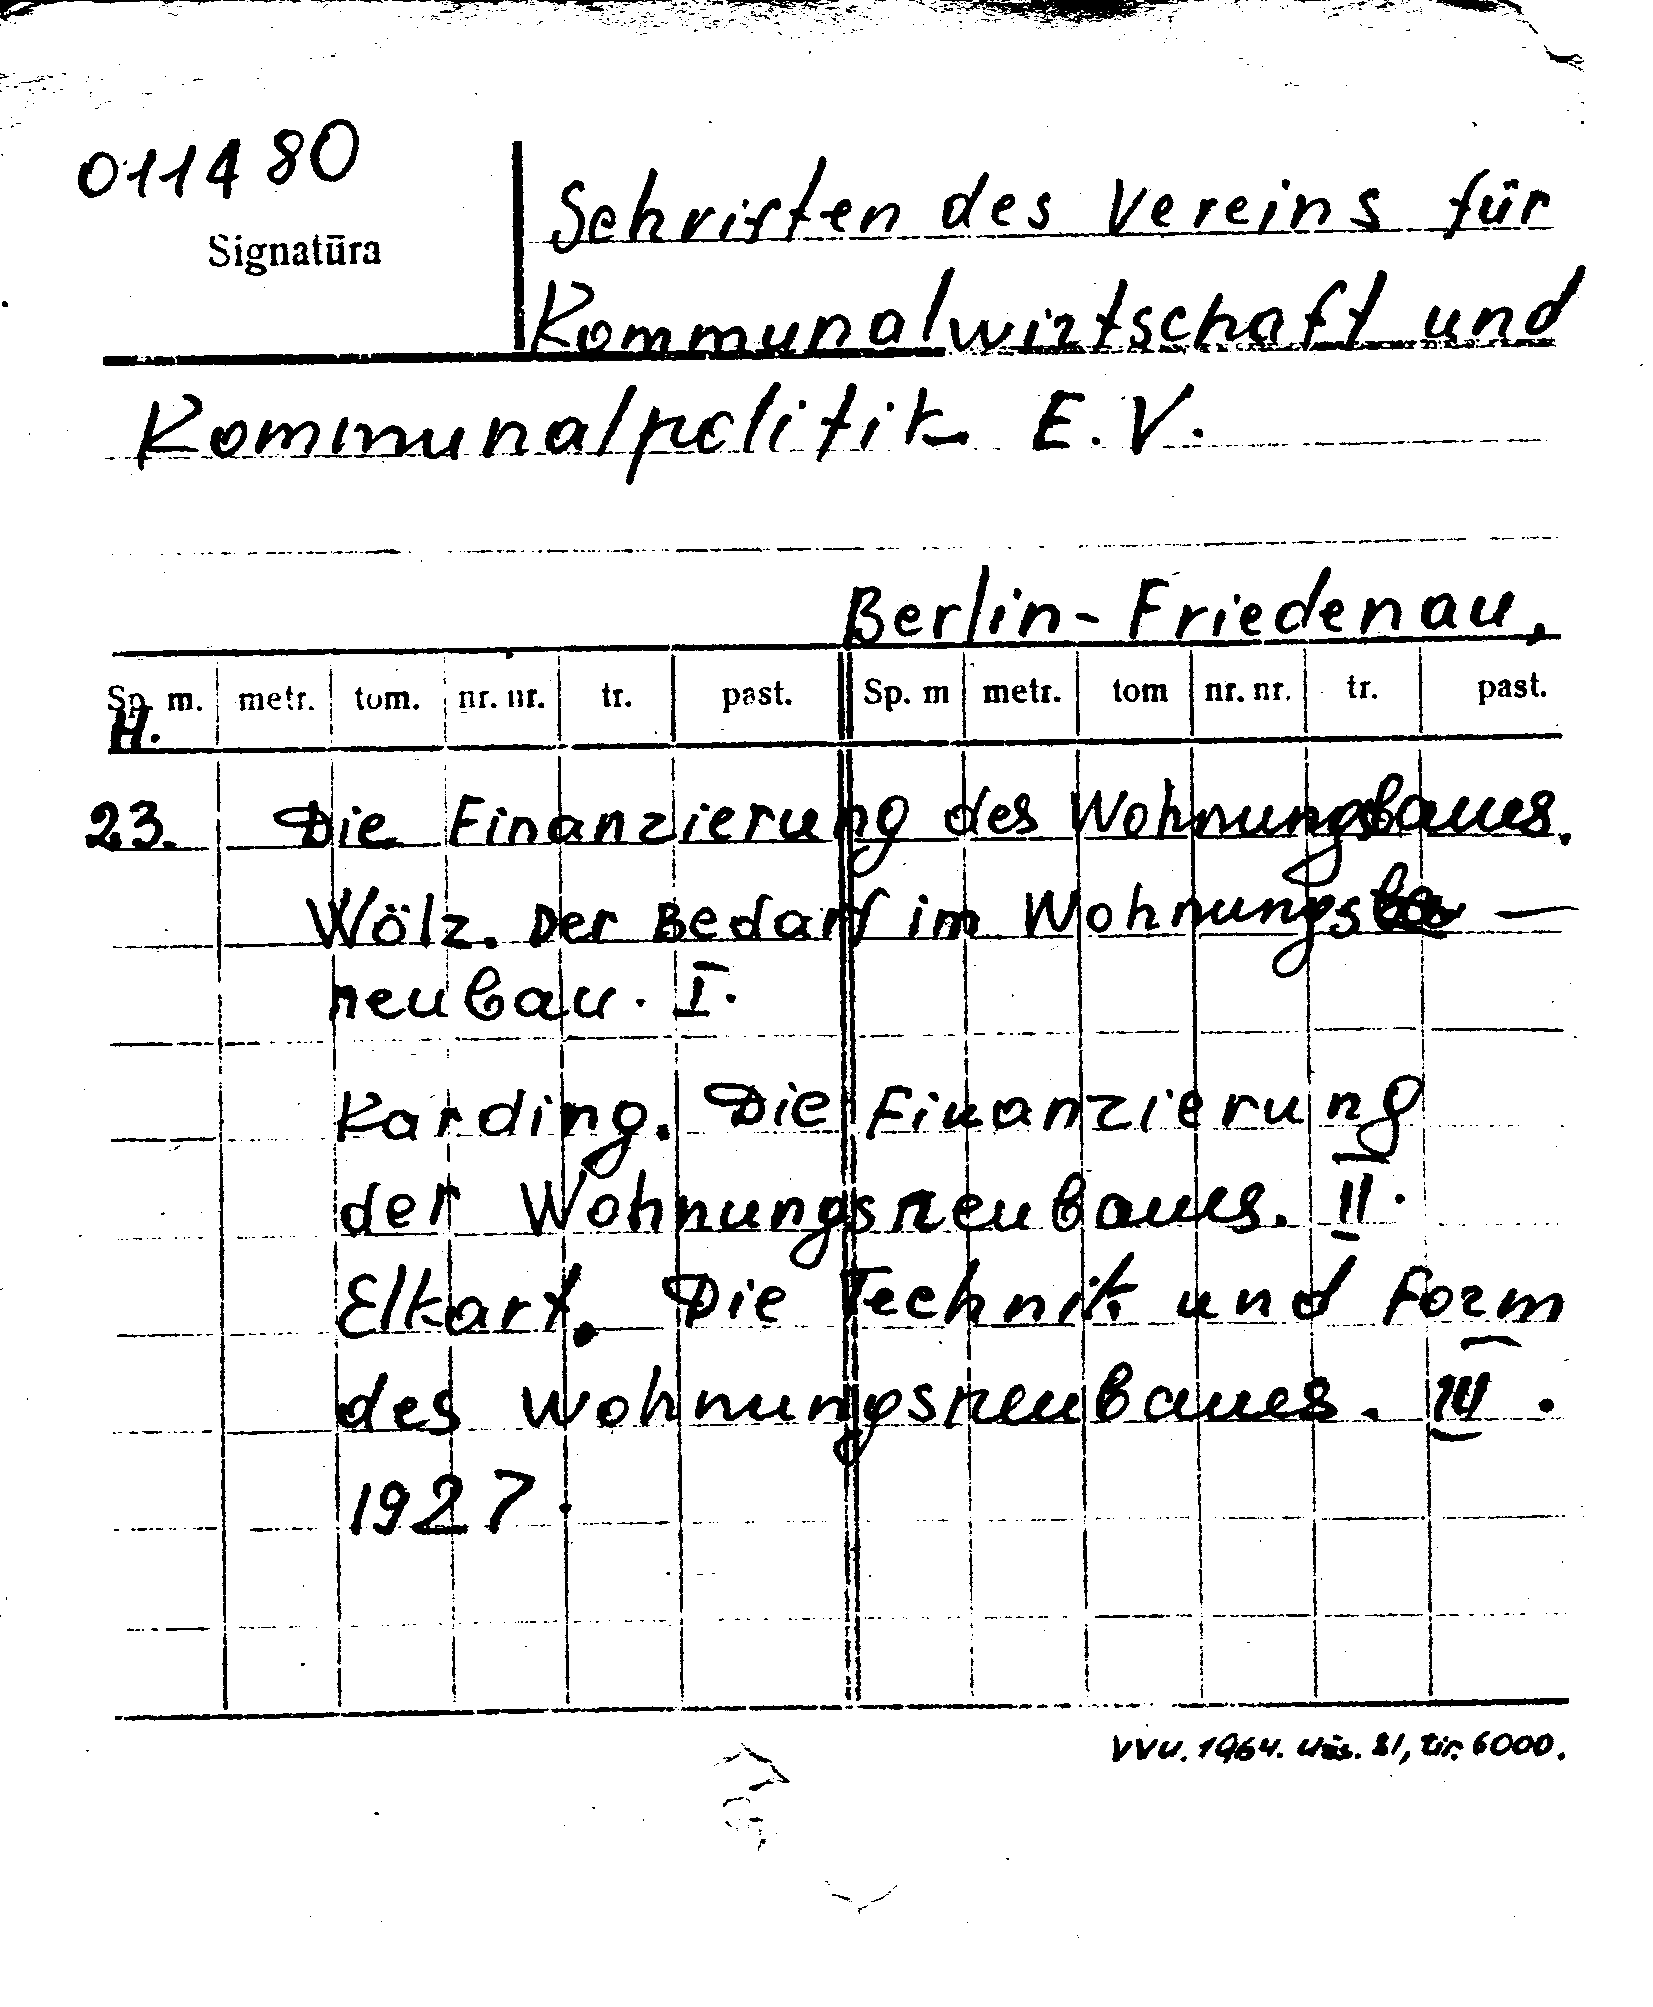 011480
Signatūra
Schriften des Vereins für
Kommunalwirtschaft und
Kommunalpolitik E.V.
Berlin-Friedenau,
Sp. m. metr. tom. nr. nr. tr. past. Sp. m metr. tom nr. nr. tr. past.
H.
23. Die Finanzierung des Wohnungsbaues.
Wölz. Der Bedarf im Wohnungs—
neubau. I.
Karding. Die Finanzierung
der Wohnungsneubaues. II.
Elkart. Die Technik und Form
des Wohnungsneubaues. III.
1927.
VVU. 1964. Užs. 81, tir. 6000.